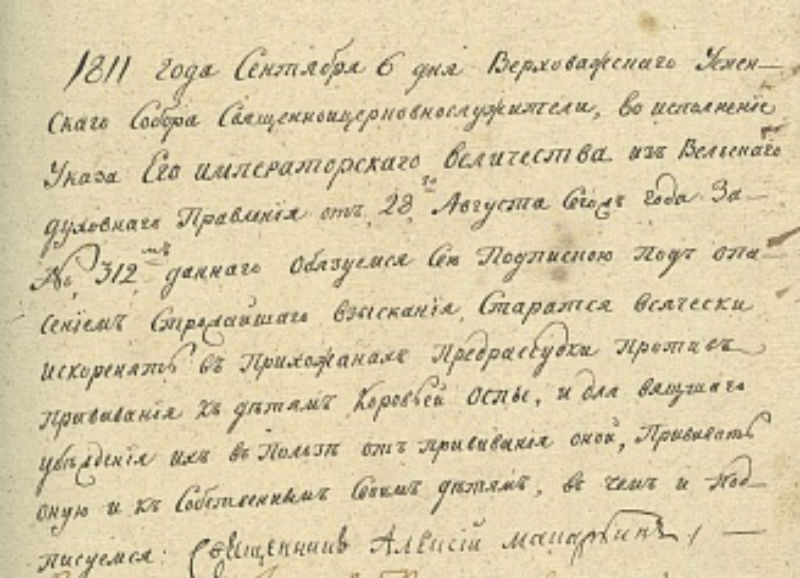 1811 года Сентября 6 дня Верховажскаго Успен-
скаго Собора Священноицерковнослужители, во исполненіе
Указа Его императорскаго величества изъ Вельскаго
духовнаго Правленія отъ 28го Августа Сего года За
№ 312мъ даннаго обязуемся Сею Подпискою подъ опа-
сеніемъ Строжайшаго взысканія Старатся всячески
искоренять въ Прихожанахъ Предразсудки Противъ
прививанія къ дѣтямъ Коровьей Оспы, и для вящшаго
убѣжденія ихъ въ Пользѣ отъ прививанія оной, Прививать
оную и къ Собственнымъ Своимъ дѣтямъ, въ чемъ и Под-
писуемся. Священникъ Алексій